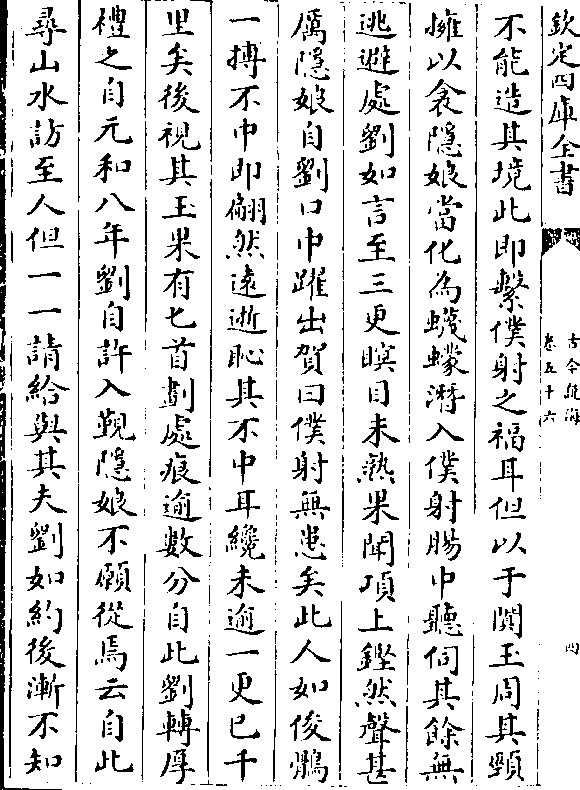 欽定四庫全書
古今說海
卷五十六
四
不能造其境此即繫僕射之福耳但以于闐玉周其頸
擁以衾隱娘當化為蠛蠓潛入僕射腸中聽伺其餘無
逃避處劉如言至三更瞑目未熟果聞項上鏗然聲甚
厲隱娘自劉口中躍出賀曰僕射無患矣此人如俊鶻
一搏不中即翩然遠逝恥其不中耳纔未逾一更已千
里矣後視其玉果有匕首劃處痕逾數分自此劉轉厚
禮之自元和八年劉自許入覲隱娘不願從焉云自此
尋山水訪至人但一一請給與其夫劉如約後漸不知